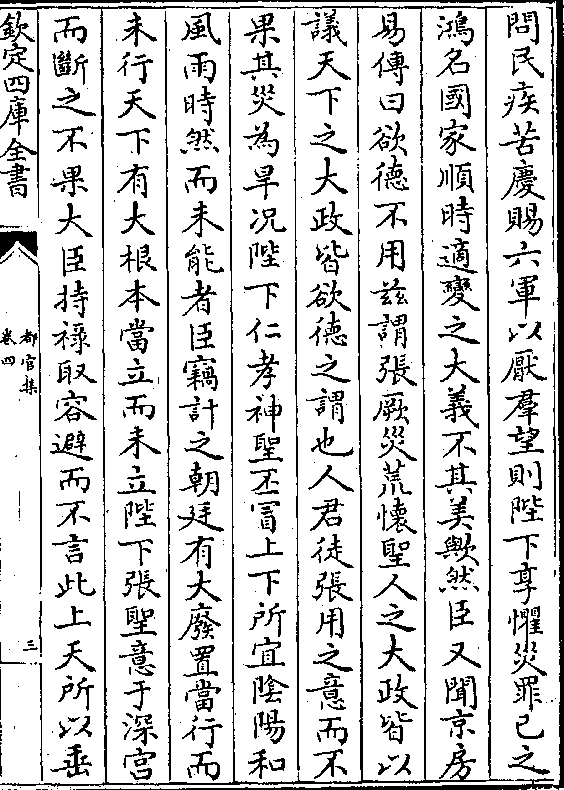 問民疾苦慶賜六軍以厭羣望則陛下享懼災罪己之
鴻名國家順時適變之大義不其美歟然臣又聞京房
易傳曰欲德不用兹謂張厥災荒懷聖人之大政皆以
議天下之大政皆欲德之謂也人君徒張用之意而不
果其災為旱况陛下仁孝神聖丕冒上下所宜陰陽和
風雨時然而未能者臣竊計之朝廷有大廢置當行而
未行天下有大根本當立而未立陛下張聖意于深宮
而斷之不果大臣持祿取容避而不言此上天所以垂
欽定四庫全書
都官集
卷四
三